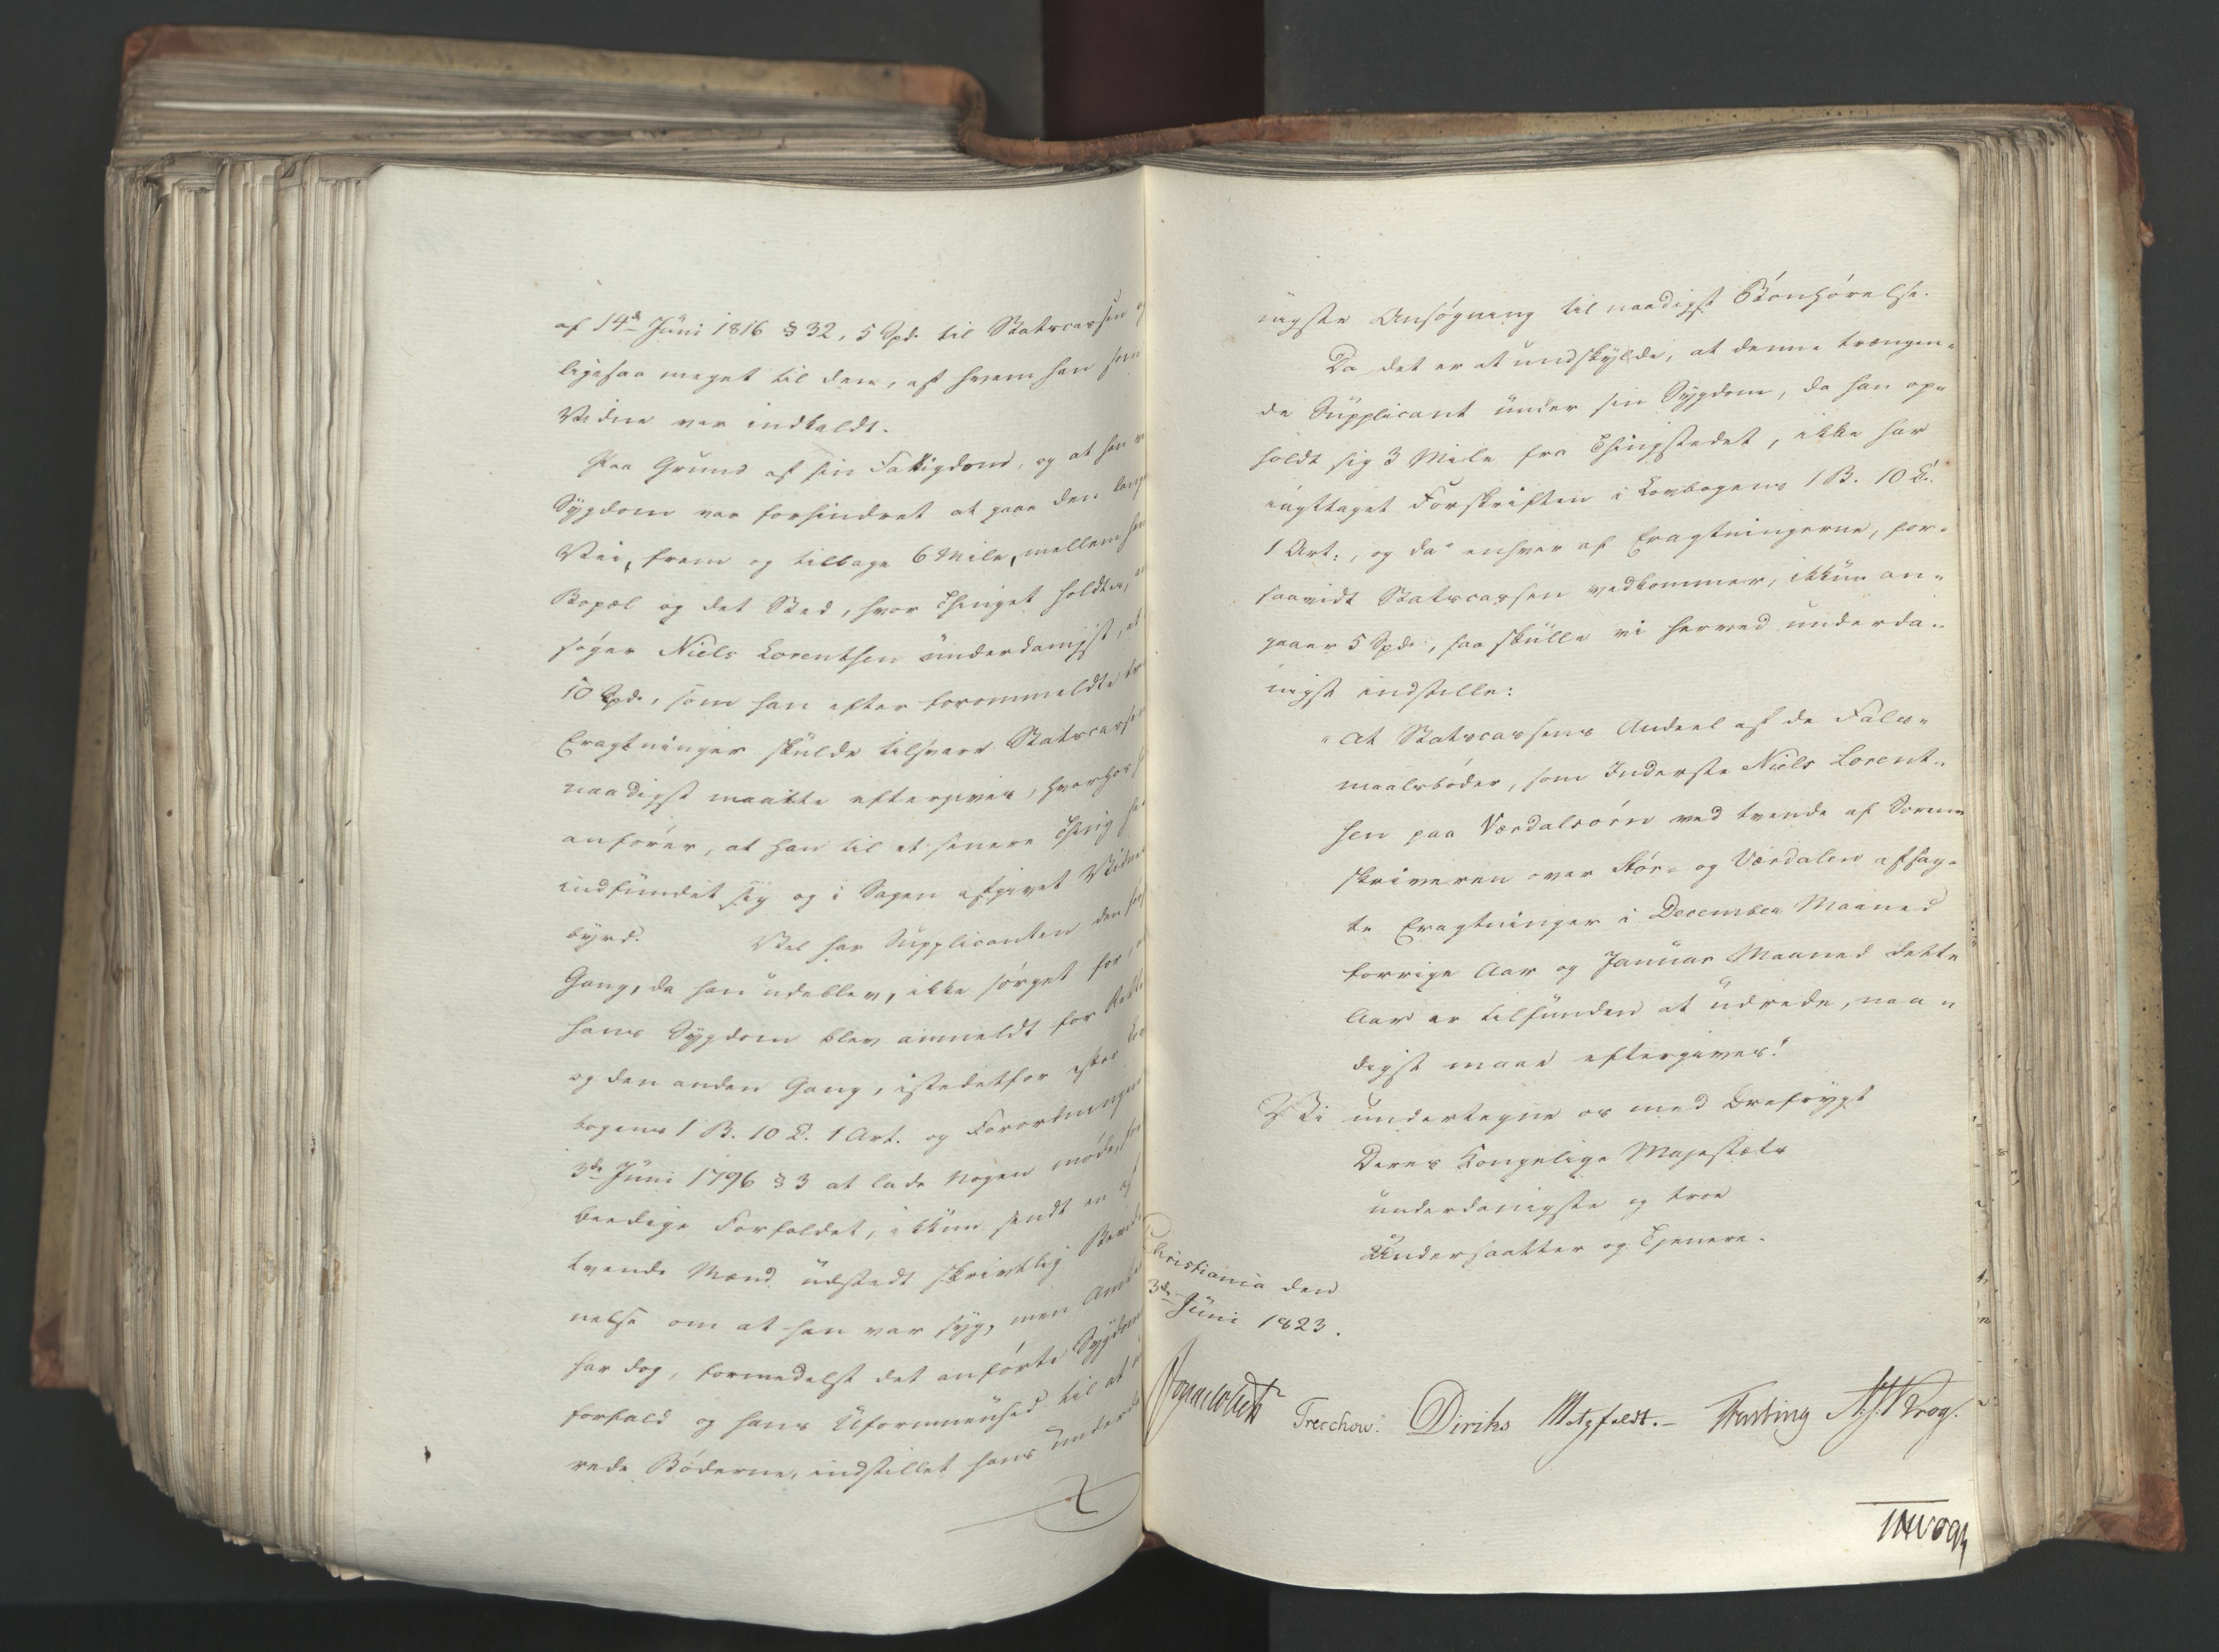 af 14de Juni 1816 § 32, 5 Spd. til Statscassen og
ligesaa meget til den, af hvem han som
Vidne var indkaldt.
Paa Grund af sin Fattigdom, og at han ved
Sygdom var forhindret at gaae den lange
Vei, frem og tilbage 6 Mile, mellem hans
Bopæl og det Sted, hvor Thinget holdtes, an-
søger Niels Lorentsen underdanigst, at
10 Spd., som han efter forommeldte tvende
Eragtninger skulde tilsvare Statscassen
naadigst maatte eftergives, hvorhos han
anfører, at han til et senere Thing har
indfundet sig og i Sagen afgivet Vidnes-
byrd. Vel har Supplicanten den første
Gang, da han udeblev, ikke sørget for, at
hans Sygdom blev anmeldt for Retten
og den anden Gang, istedetfor efter Lov-
bogens 1 B. 10 C. 1 Art. og Forordningen
3de Juni 1796 § 3 at lade Nogen møde, for at
beedige Forfaldet, ikkun sendt en af
tvende Mænd udstedt skriftlig Bevid-
nelse om at han var syg, men Amtet
har dog, formedelst det anførte Sygdoms-
forfald og hans Uformuenhed til at ud-
rede Bøderne, indstillet hans underda-
nigste Ansøgning til naadigst Bønhørelse.
Da det er at undskylde, at denne trængen-
de Supplicant under sin Sygdom, da han op-
holdt sig 3 Mile fra Thingstedet, ikke har
iagttaget Forskriften i Lovbogens 1 B. 10 C.
1 Art., og da enhver af Eragtningerne, for-
saavidt Statscassen vedkommer, ikkun an-
gaaer 5 Spd., saa skulle vi herved underda-
nigst indstille:
"At Statscassens Andeel af de Fals-
maalsbøder, som Inderste Niels Lorent-
sen paa Værdalsøren ved tvende af Soren-
skriveren over Stør- og Værdalen afsag-
te Eragtninger i December Maaned
forrige Aar og Januar Maaned dette
Aar er tilfunden at udrede, naa-
digst maae eftergives."
Vi undertegne os med Ærefrygt
Deres Kongelige Majestæts
underdanigste og troe
Undersaatter og Tjenere.
Christiania den
3de Juni 1823.
Treschow. Diriks Motzfeldt.- Fasting